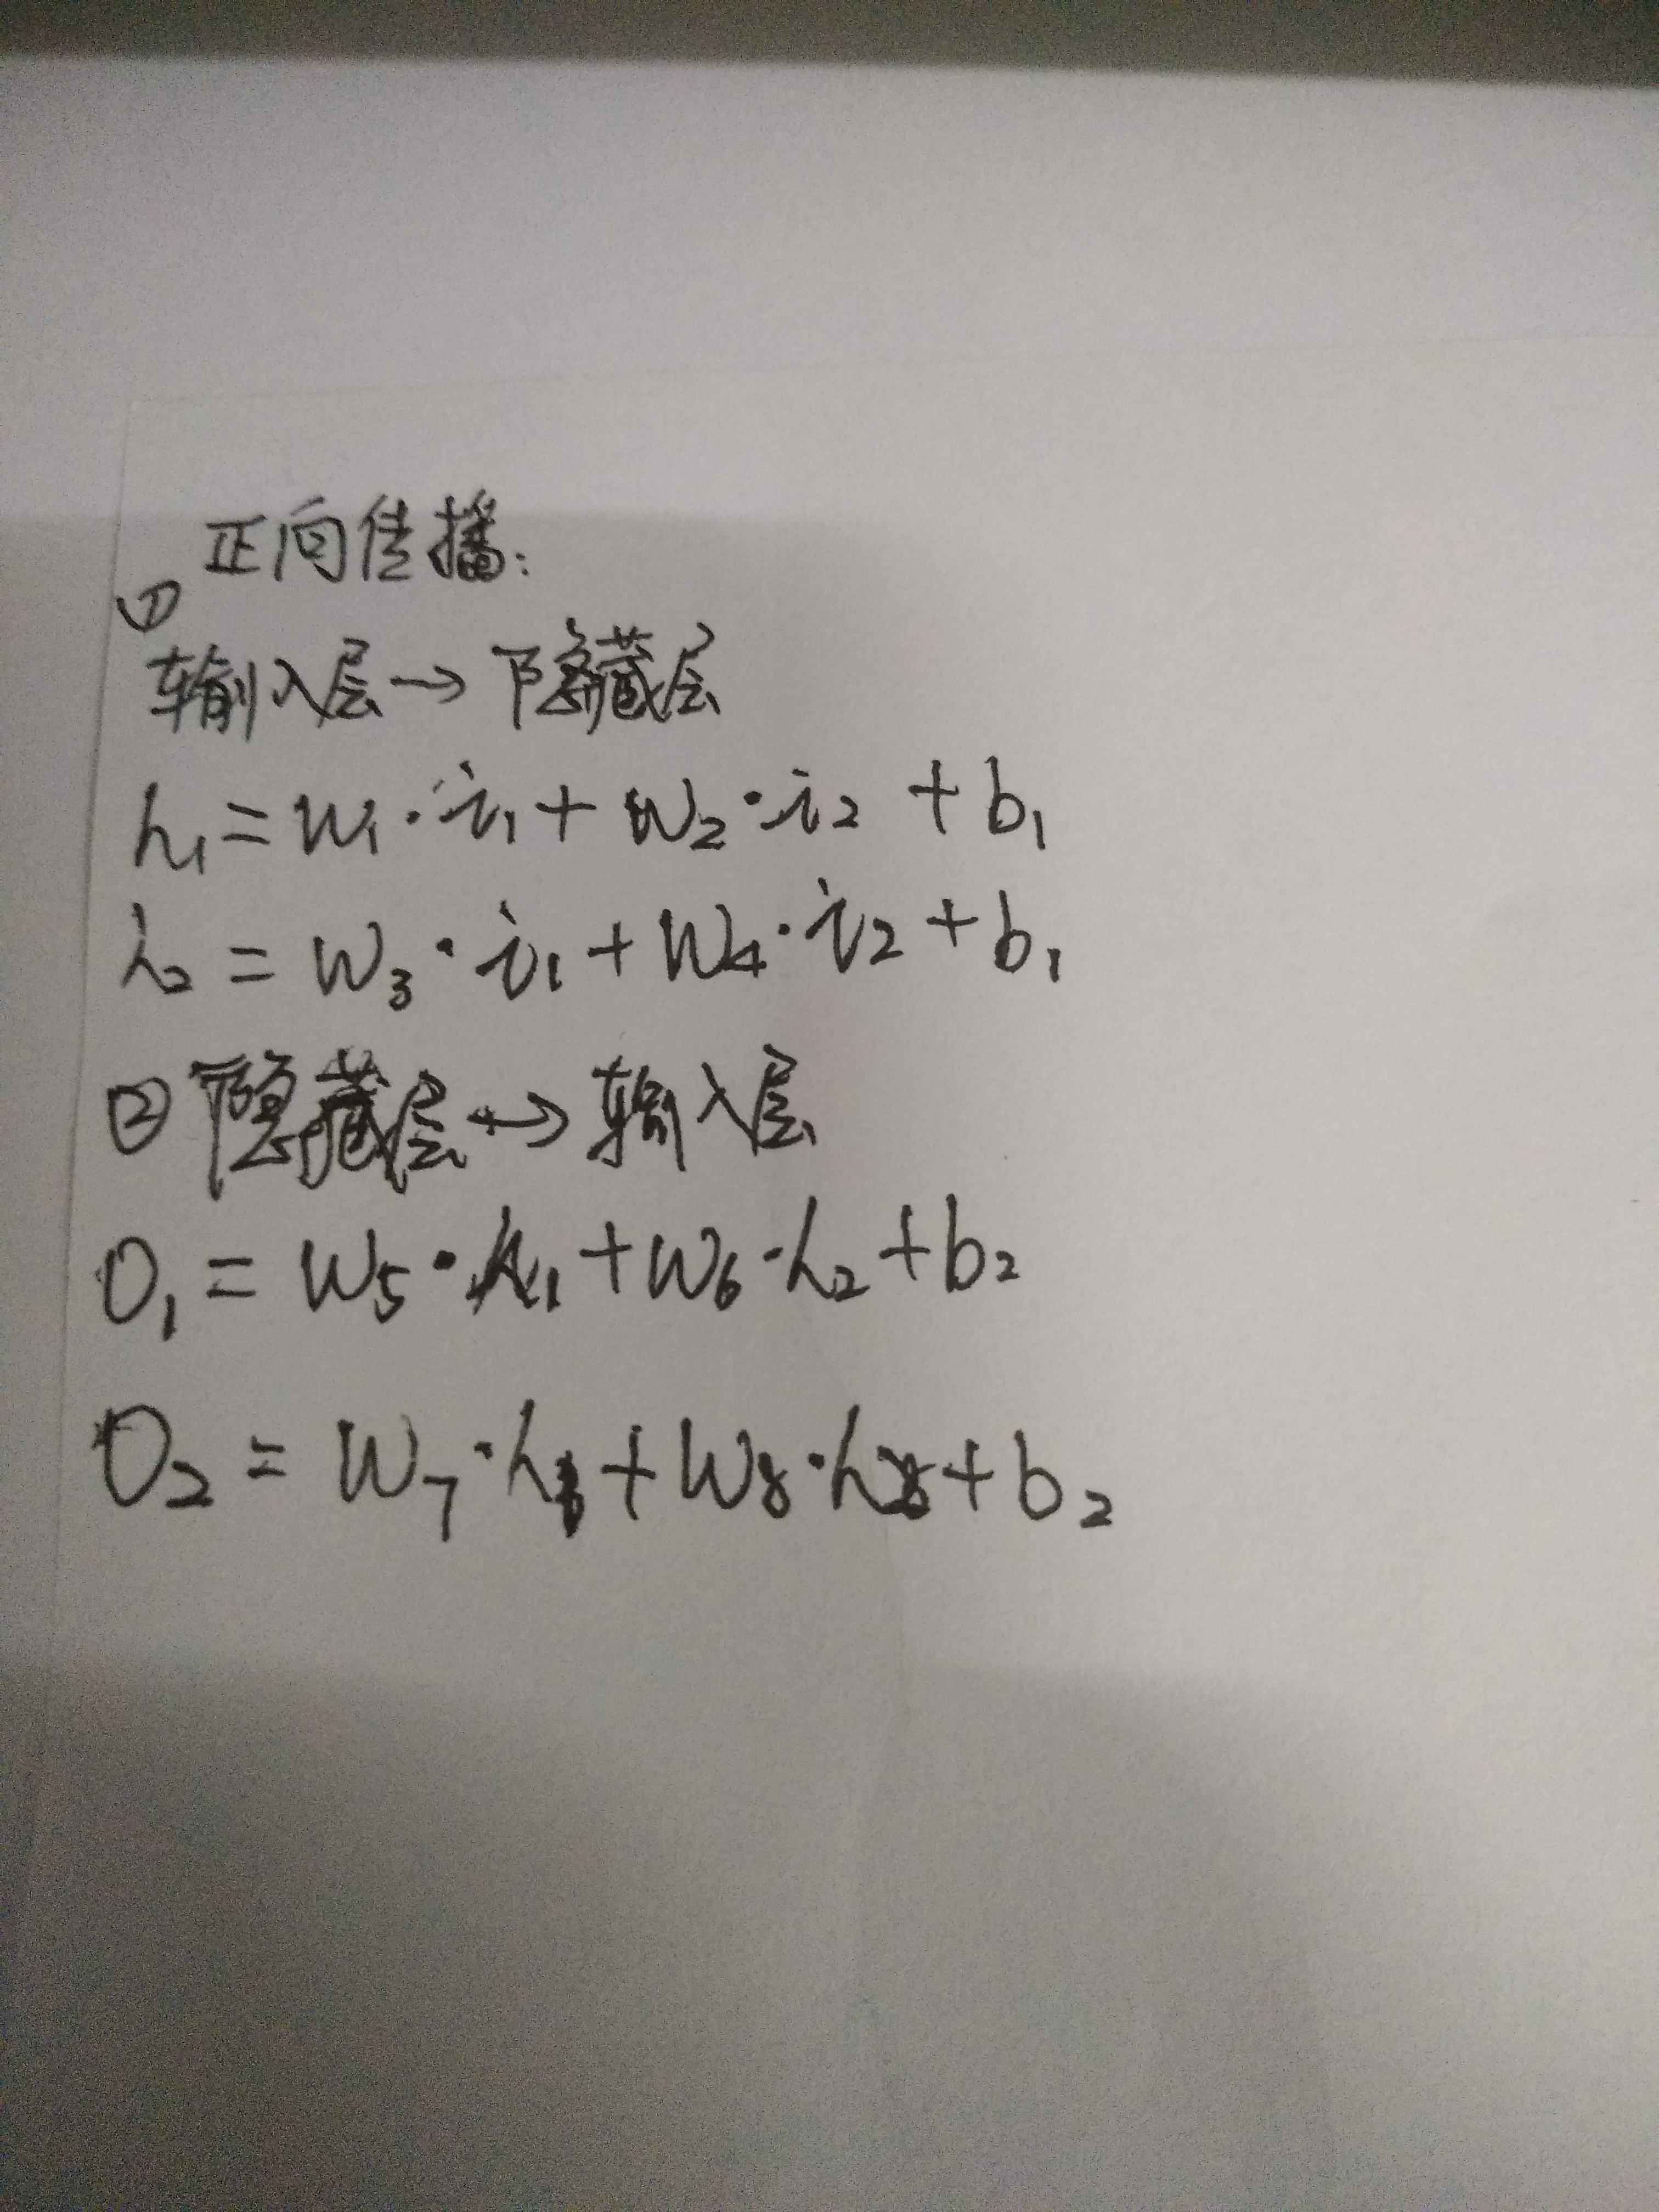 正向传播:
①
输入层→隐藏层
h₁=w₁·i₁+w₂·i₂+b₁
h₂=w₃·i₁+w₄·i₂+b₁
②隐藏层→输入层
O₁=w₅·h₁+w₆·h₂+b₂
O₂=w₇·h₁+w₈·h₂+b₂